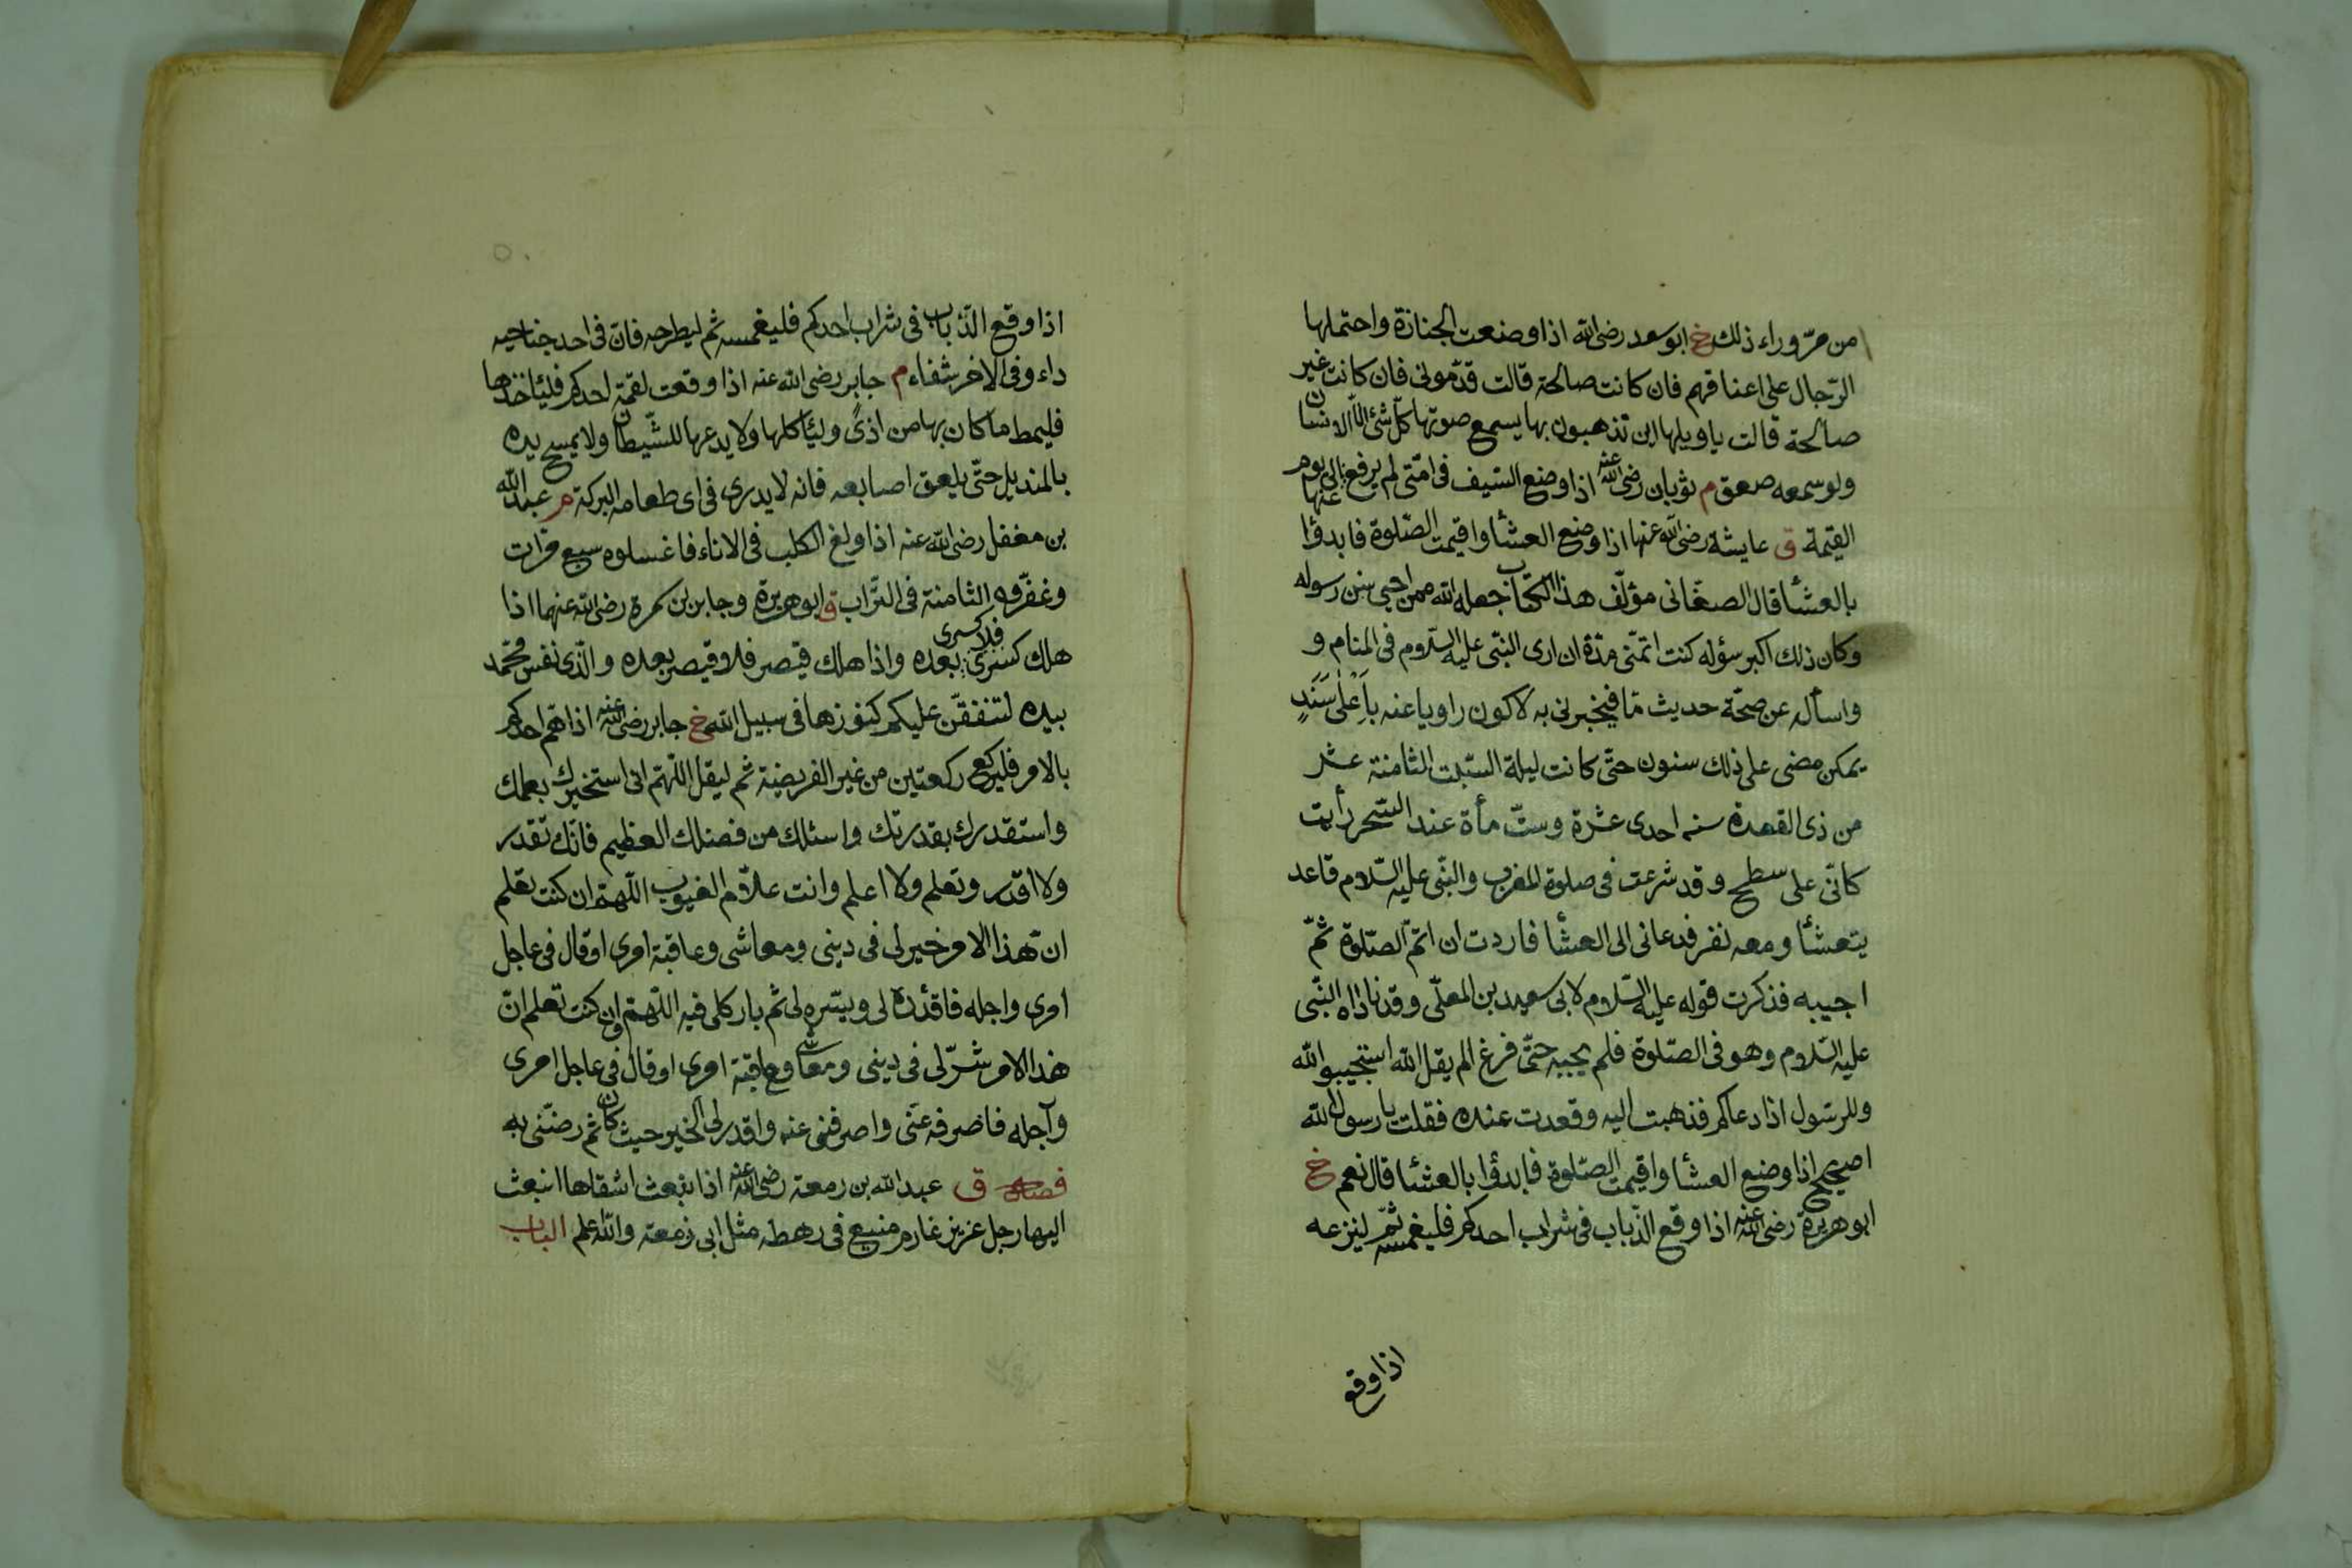 من مرّ وراء ذلك خ ابو سعد رضى الله اذا وضعت الجنازة واحتملها
الرّجال على اعناقهم فان كانت صالحة قالت قدّمونى فان كانت غير
صالحة قالت يا ويلها اين تذهبون بها يسمع صوتها كلّ شئ الّا الانسان
ولو سمعه صعق م ثوبان رضى الله عنه اذا وضع السّيف فى امّتى لم يرفع عنها الى يوم
القيمة ق عايشة رضى الله عنها اذا وضع العشأ واقيمت الصّلوة فابدوا
بالعشأ قال الصغانى مؤلّف هذا الكتاب جعله الله ممن احيى سنن رسوله
وكان ذلك اكبر سؤله كنت اتمنّى مدّة ان ارى النبّى عليه السّلام فى المنام و
واسأله عن صحّة حديث مّا فيخبرنى به لاكون راويا عنه باَعْلٰى سَنَدٍ
يمكن مضى على ذلك سنون حتّى كانت ليلة السّبت الثامنة عشر
من ذى القعدة سنه احدى عشرة وستّ مأة عند السّحر رأيت
كانّى على سطح وقد شرعت فى صلوة المغرب والنبّى عليه السّلام قاعد
يتعشأ ومعه نفر فدعانى الى العشأ فاردت ان اتمّ الصّلوة ثمّ
اجيبه فذكرت قوله عليه السّلام لابى سعيد بن المعلّى وقد ناداه النبّى
عليه السّلام وهو فى الصّلوة فلم يجبه حتّى فرغ الم يقل الله استجيبوا لله
وللرّسول اذا دعاكم فذهبت اليه وقعدت عنده فقلت يا رسول الله
اصحيح اذا وضع العشأ واقيمت الصّلوة فابدؤا بالعشأ قال نعم خ
ابو هريرة رضى الله عنه اذا وقع الذّباب فى شراب احدكم فليغمسه ثمّ لينزعه
اذا وقع
اذا وقع الذّباب فى شراب احدكم فليغمسه ثم ليطرحه فانّ فى احد جناحيه
داء وفى الاخر شفاء م جابر رضى الله عنه اذا وقعت لقمة احدكم فليأخذها
فليمط ما كان بها من اذىً وليأكلها ولا يدعها للشّيطان ولا يمسح يده
بالمنديل حتّى يلعق اصابعه فانه لا يدرى فى اى طعامه البركة م عبد الله
بن مغفل رضى الله عنه اذا ولغ الكلب فى الاناء فاغسلوه سبع مرّات
وغفّروه الثامنة فى التّراب ق ابو هريرة وجابر بن سمرة رضى الله عنهما اذا
هلك كسرى فلا كسرى بعده واذا هلك قيصر فلا قيصر بعده والّذى نفس محّمد
بيده لتنفقنّ عليكم كنوزها فى سبيل الله خ جابر رضى الله عنه اذا همّ احدكم
بالامر فليركع ركعتين من غير الفريضة ثم ليقل اللّهمّ انى استخيرك بعلمك
واستقدرك بقدرتك واسئلك من فضلك العظيم فانّك تقدر
ولا اقدر وتعلم ولا اعلم وانت علّام الغيوب اللّهمّ ان كنت تعلم
انّ هذا الامر خير لى فى دينى ومعاشى وعاقبة امرى او قال فى عاجل
امرى واجله فاقدُده لى ويسّره لى ثم بارك لى فيه اللّهمّ وان كنت تعلم انّ
هذا الامر شرّ لى فى دينى ومعاشى وعاقبة امرى او قال فى عاجل امرى
وآجله فاصرفه عنّى واصرفنى عنه واقدر لى الخير حيث كان ثم رضّنى به
ق عبد الله بن زمعة رضى الله عنه اذا نبعث اشقاها انبعث
اليها رجل عزيز عارم منيع فى رهطه مثل ابى زمعة والله اعلم الباب